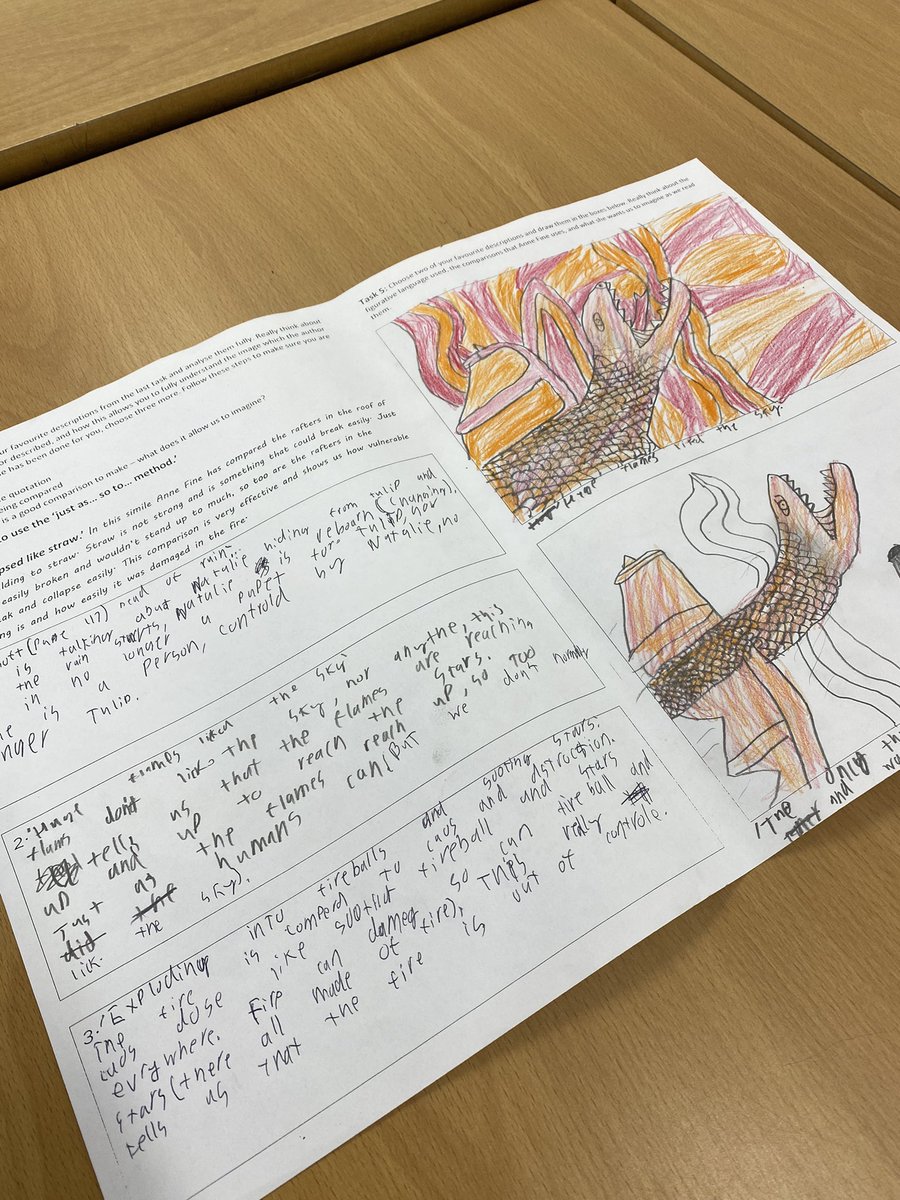 ur favourite descriptions from the last task and analyse them fully. Really think about
or described, and how this allows you to fully understand the image which the author
ne has been done for you, choose three more. Follow these steps to make sure you are
e quotation
eing compared
is a good comparison to make – what does it allow us to imagine?
to use the 'just as... so to... method.'
psed like straw.' In this simile Anne Fine has compared the rafters in the roof of
lding to straw. Straw is not strong and is something that could break easily. Just
easily broken and wouldn't stand up to much, so too are the rafters in the
ak and collapse easily. This comparison is very effective and shows us how vulnerable
ng is and how easily it was damaged in the fire.
(page 117) head of ruin..
is talking about Natalie hiding from tulip and
the rain starts, Natalie is reboarn
in no longer a pupet for tulip, nor
e is a person, controld by Natalie, no
nger Tulip.
2. 'Huge flames liked the sky'
flams dont lick the sky, nor anythe, this
tells us that the flames are reaching
up and up to reach the stars.
Just as the flames reach up, so too
did humans can(but we dont normaly
lick the sky).
3. 'Exploding into fireballs and sooting stars.
The fire is comperd to caos and dstruction.
caos dose like sootist fireball and stars
evrywhere. Fire can dameg so can fire ball and
stars(there all made of fire), This really
tells us that the fire is out of controle.
Task 5: Choose two of your favourite descriptions and draw them in the boxes below. Really think about the
figurative language used, the comparisons that Anne Fine uses, and what she wants us to imagine as we read
them
flames liked the sky.
'The once
and